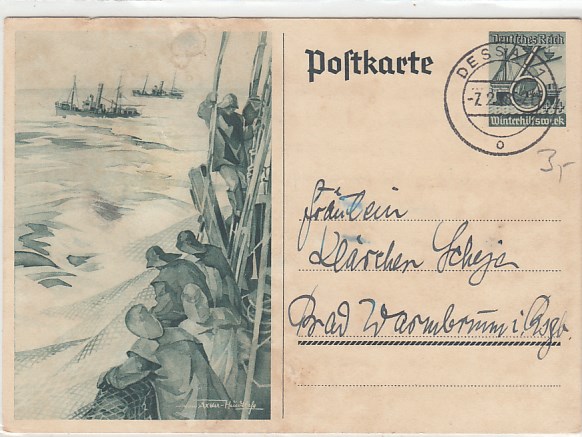 Deutsches Reich
Postkarte
DESSAU
-7.2.
Winterhilfswerk
o
3,-
Fräulein
Klärchen Scheja
Bad Warmbrunn i. Rsgb.